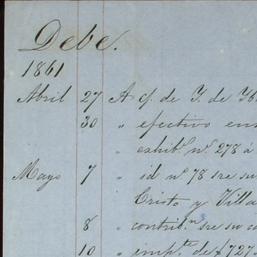 Debe.
1861
Abril 27 A cf. de I. de
30 " efectivo
" exhib.n nº 278 á
Mayo 7 " id nº 78 sre su
Cristo y Villa
8 " contrib.n sre su
10 " imp.te de £ 727